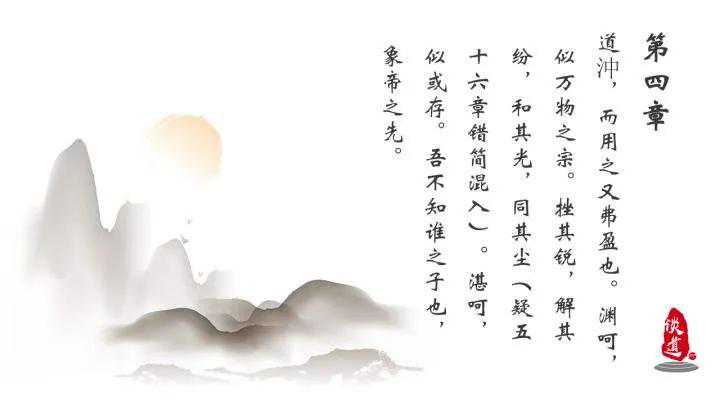 第四章
道沖，而用之又弗盈也。渊呵，
似万物之宗。挫其锐，解其
纷，和其光，同其尘（疑五
十六章错简混入）。湛呵，
似或存。吾不知谁之子也，
象帝之先。
谈道